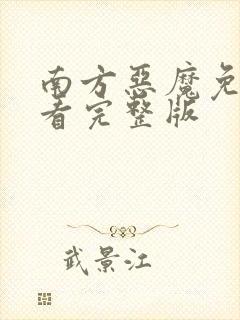 南方惡魔免
看完整版
武景江